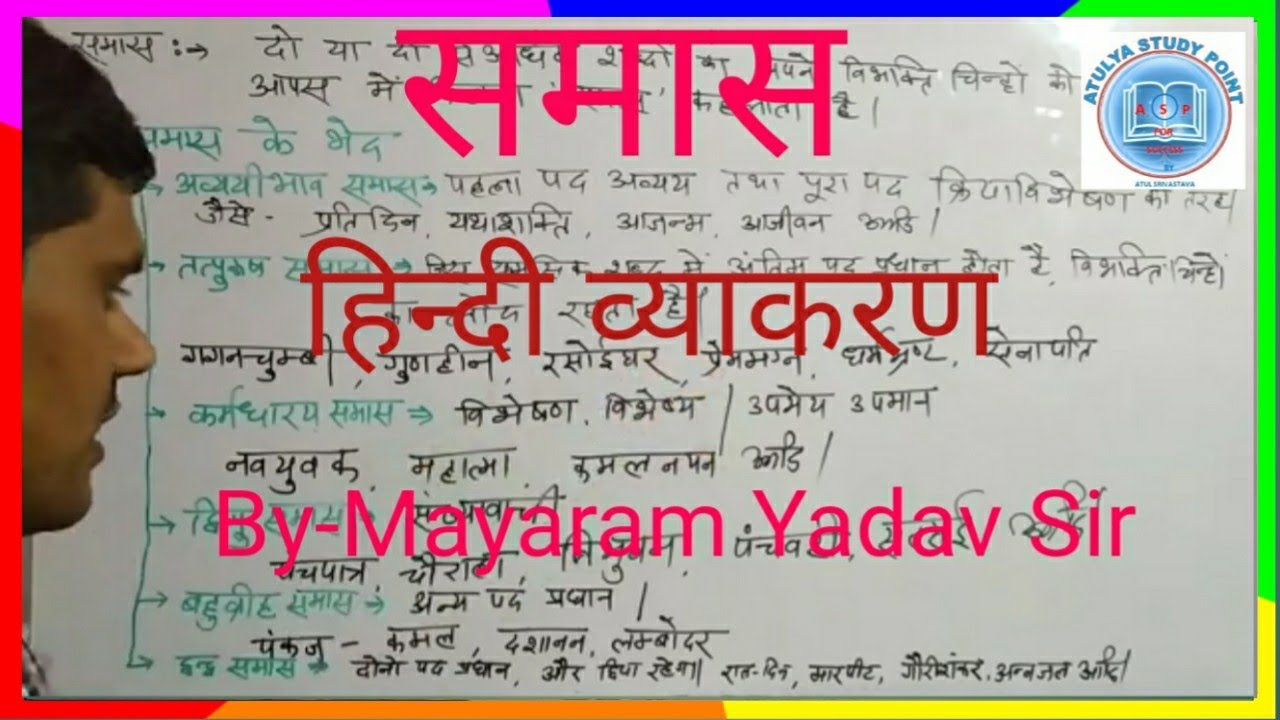 समास :→ दो या दो से अधिक शब्दों का अपने विभक्ति चिन्हों को
आपस में कहलाता है।
समास
ATULYA STUDY POINT
A S P
FOR
SUCCESS
BY
ATUL SRIVASTAVA
समास के भेद
→ अव्ययीभाव समास → पहला पद अव्यय तथा पूरा पद क्रियाविशेषण की तरह
जैसे - प्रतिदिन, यथाशक्ति, आजन्म, आजीवन आदि।
→ तत्पुरुष समास → शब्द में अंतिम पद प्रधान होता है, विभक्ति चिन्हों
का लोप रहता है।
हिन्दी व्याकरण
गगनचुम्बी, गुणहीन, रसोईघर, प्रेममग्न, धर्मभ्रष्ट, सेनापति
→ कर्मधारय समास ⇒ विशेषण, विशेष्य / उपमेय उपमान
नवयुवक, महात्मा, कमलनयन आदि।
→ द्विगु समास → संख्यावाची
By-Mayaram Yadav Sir
पंचपात्र, चौराहा, त्रिभुवन, पंचवटी,
→ बहुव्रीह समास → अन्य पद प्रधान।
पंकज - कमल, दशानन, लम्बोदर
→ द्वन्द्व समास → दोनो पद प्रधान, और छिपा रहेगा। रात-दिन, मारपीट, गौरीशंकर, अन्नजल आदि।